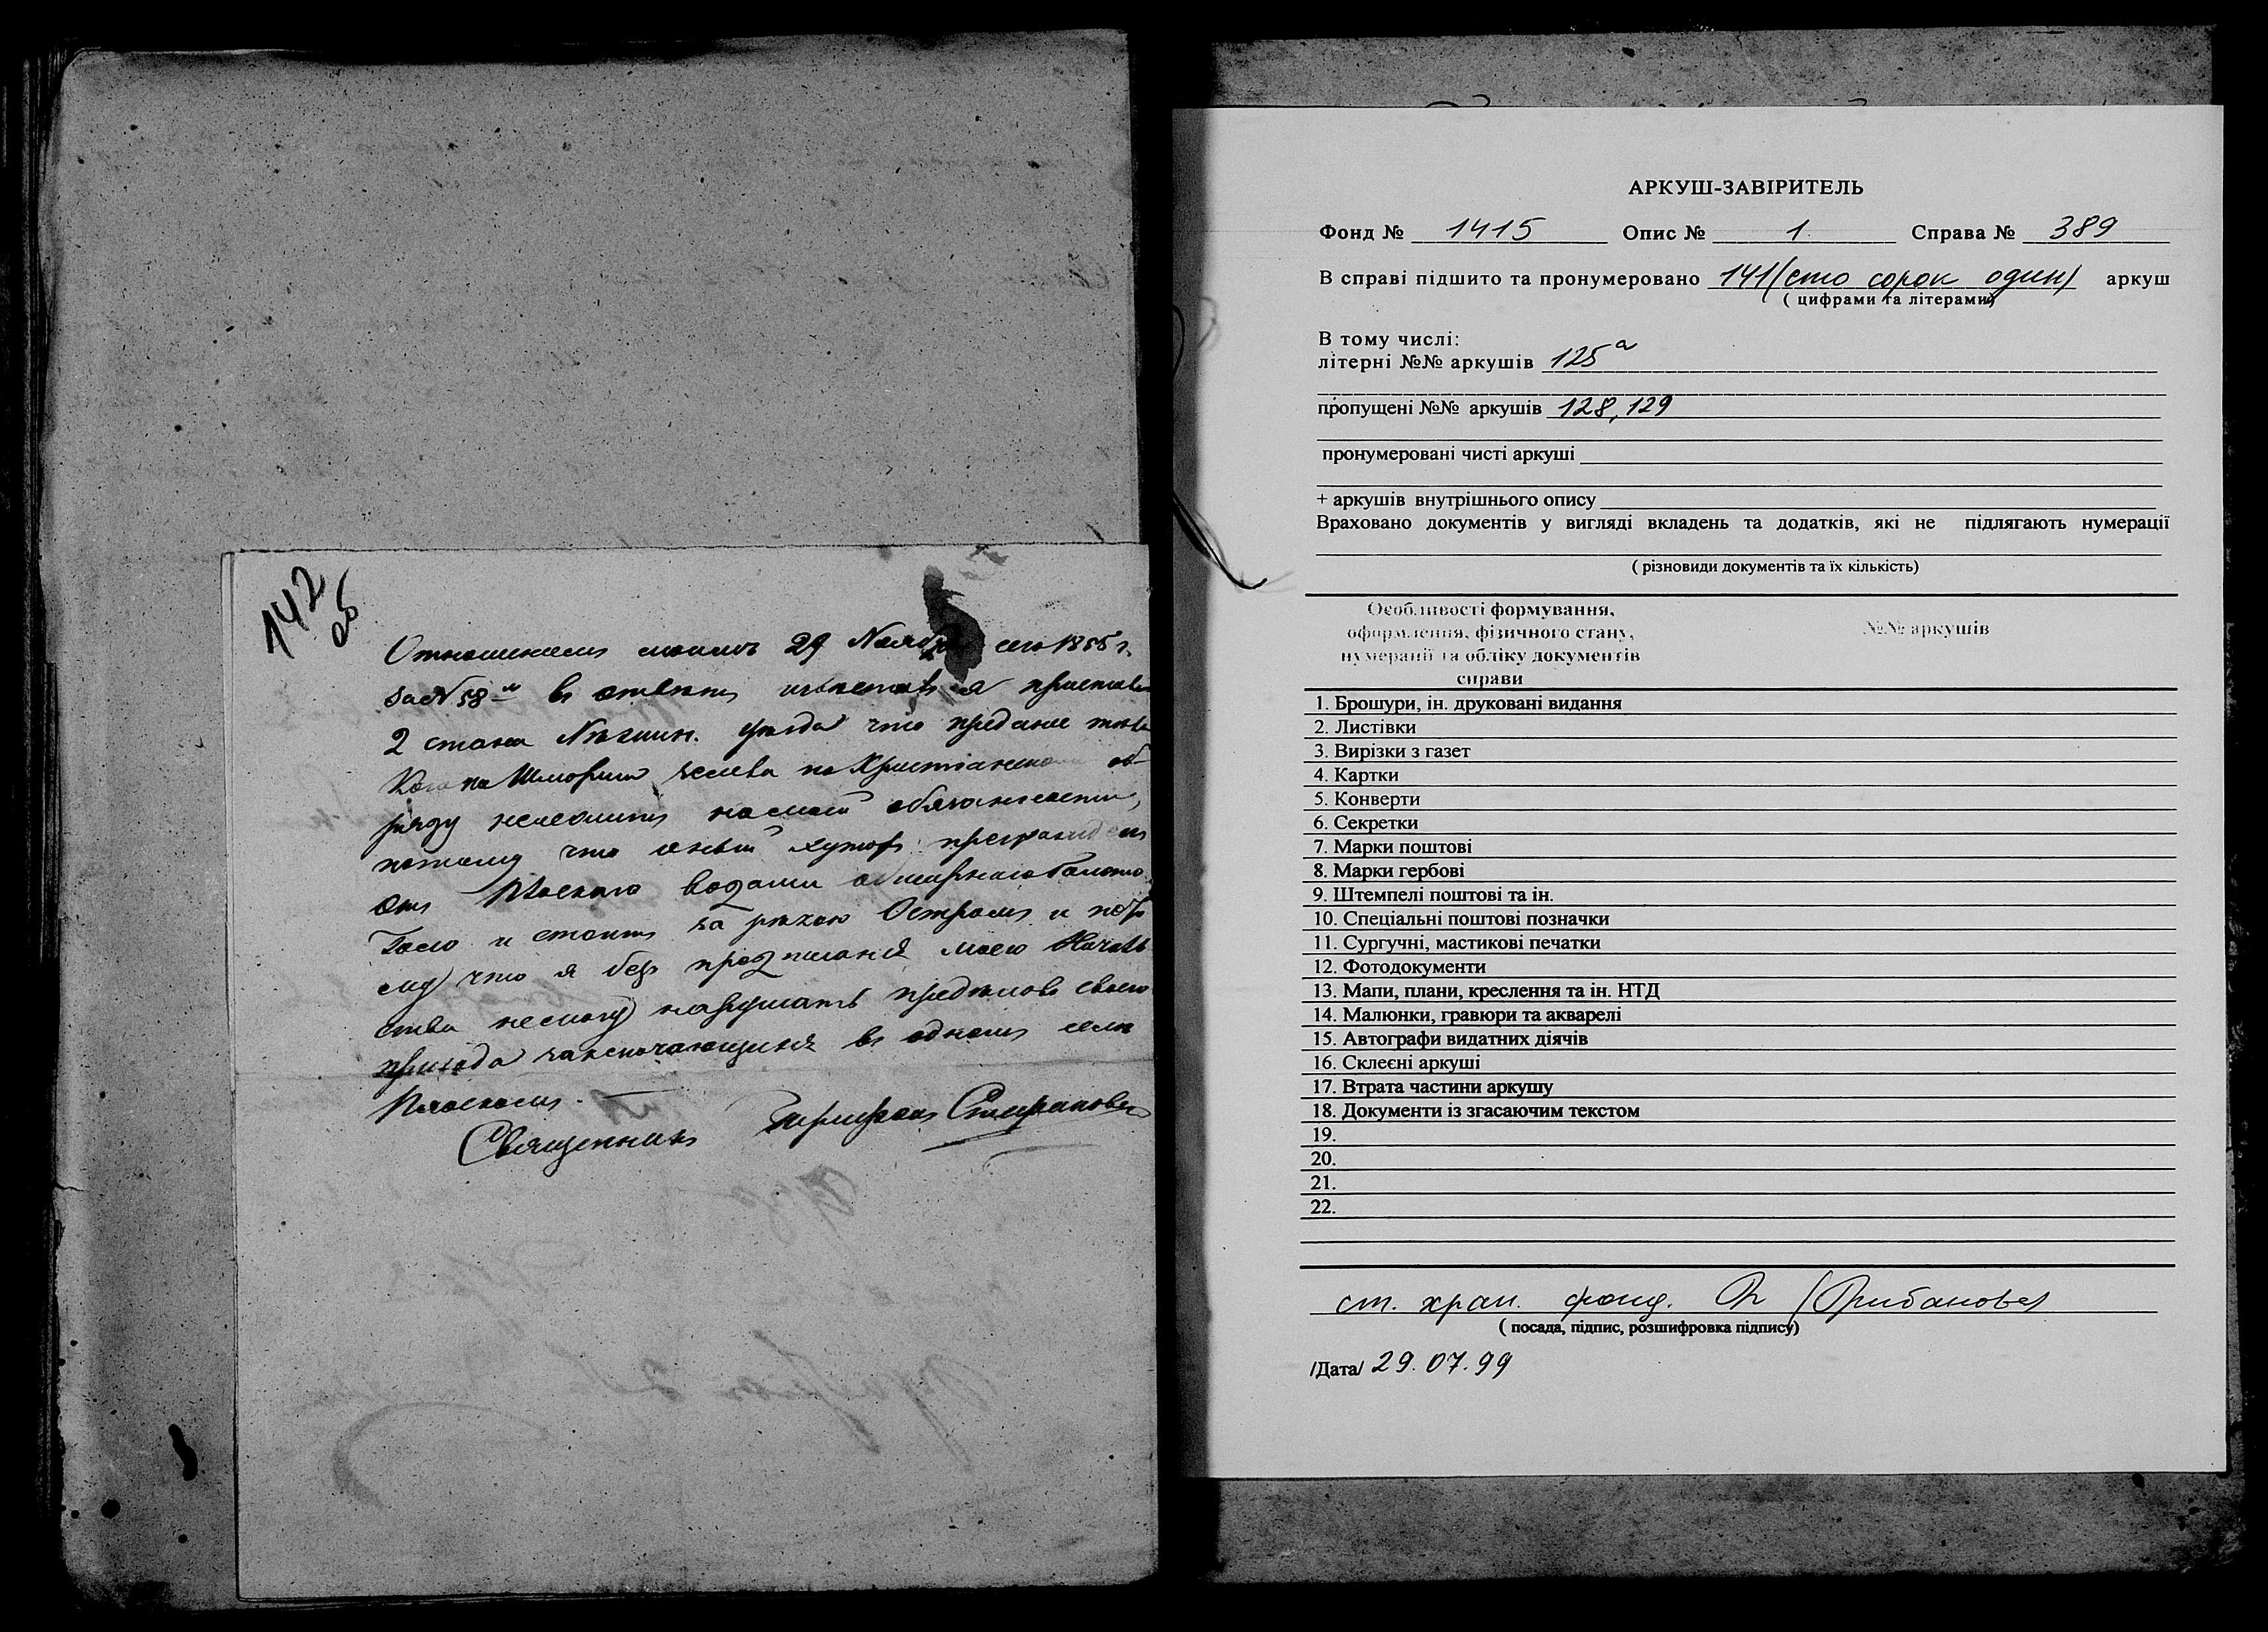 142
об
Отношениемъ моимъ 29 Ноября сего 1855 г.
за № 58 въ отвѣтъ я пристава
2 стана Нѣжин. уѣзда что преданіе
на Шморгин по Христіанскому об-
ряду не на моей обязанности,
потому что оный хуторъ прегражденъ
отъ Плоского водами обширнаго болота
и стоитъ за рѣкою Остромъ и
что я безъ предписанія моего Началь
ства не могу нарушать предѣловъ своего
прихода заключающихся въ одномъ селѣ
Плоскомъ.
Священникъ Стефановъ
АРКУШ-ЗАВІРИТЕЛЬ
Фонд № 1415 Опис № 1 Справа № 389
В справі підшито та пронумеровано 141 (сто сорок один) аркуш
( цифрами та літерами)
В тому числі:
літерні №№ аркушів 125а
пропущені №№ аркушів 128, 129
пронумеровані чисті аркуші
+ аркушів внутрішнього опису
Враховано документів у вигляді вкладень та додатків, які не підлягають нумерації
( різновиди документів та їх кількість)
Особливості формування,
оформлення, фізичного стану,
нумерації та обліку документів
справи
№№ аркушів
1. Брошури, ін. друковані видання
2. Листівки
3. Вирізки з газет
4. Картки
5. Конверти
6. Секретки
7. Марки поштові
8. Марки гербові
9. Штемпелі поштові та ін.
10. Спеціальні поштові позначки
11. Сургучні, мастикові печатки
12. Фотодокументи
13. Мапи, плани, креслення та ін. НТД
14. Малюнки, гравюри та акварелі
15. Автографи видатних діячів
16. Склеєні аркуші
17. Втрата частини аркушу
18. Документи із згасаючим текстом
19.
20.
21.
22.
ст. хран. фонд. /Грибанова/
( посада, підпис, розшифровка підпису)
/Дата/ 29.07.99